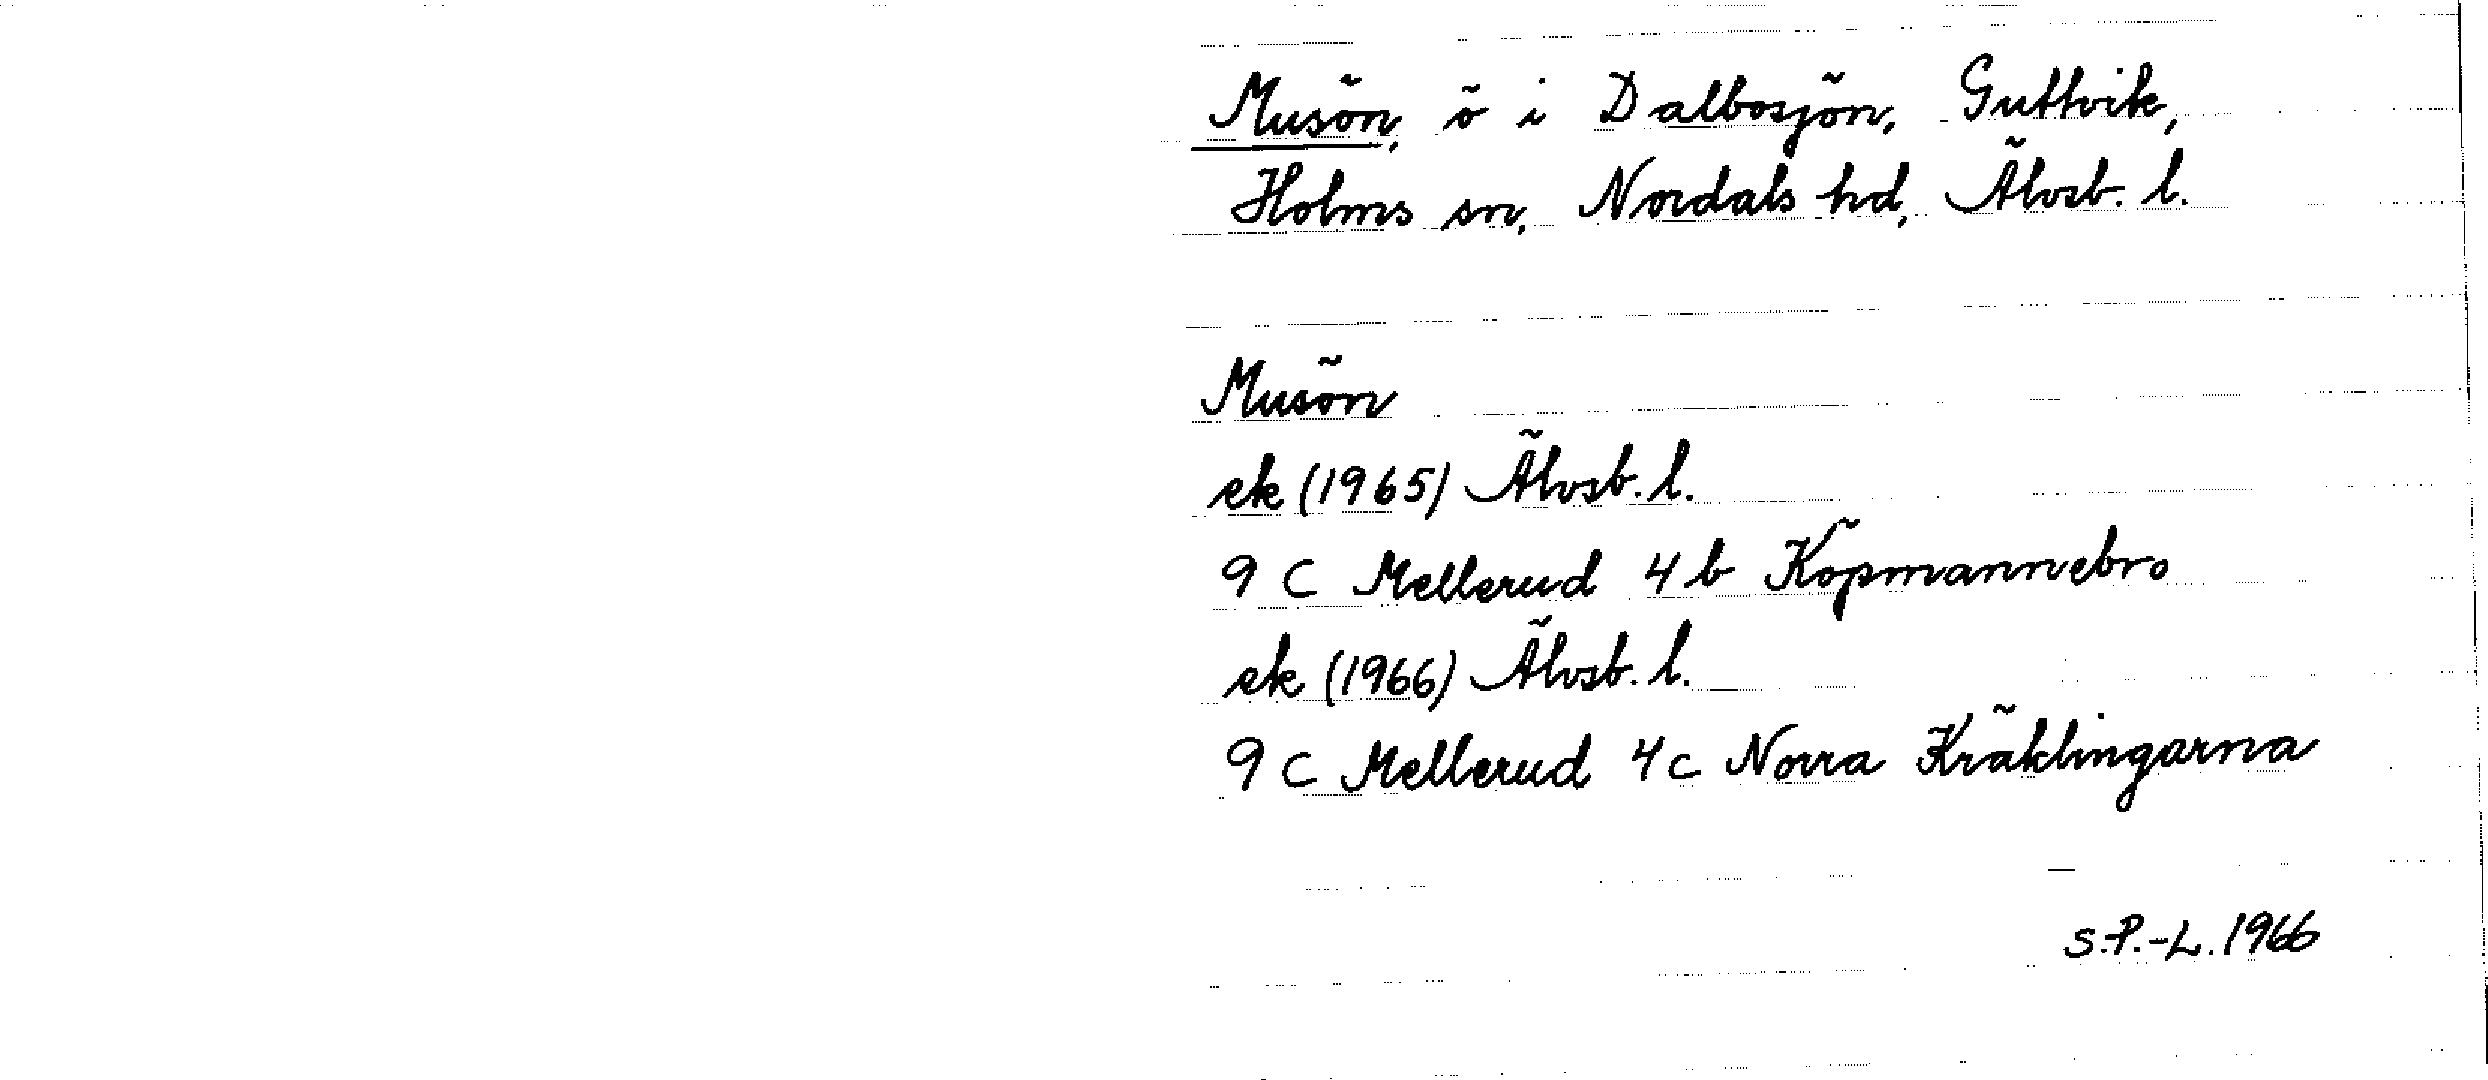 Musön, ö i Dalbosjön, Guttvik,
Holms sn, Nordals hd, Älvsb. l.
Musön
ek (1965) Älvsb. l.
9 C Mellerud 4 b Köpmannebro
ek (1966) Älvsb. l.
9 C Mellerud 4 c Norra Kräklingarna
S.P.-L. 1966